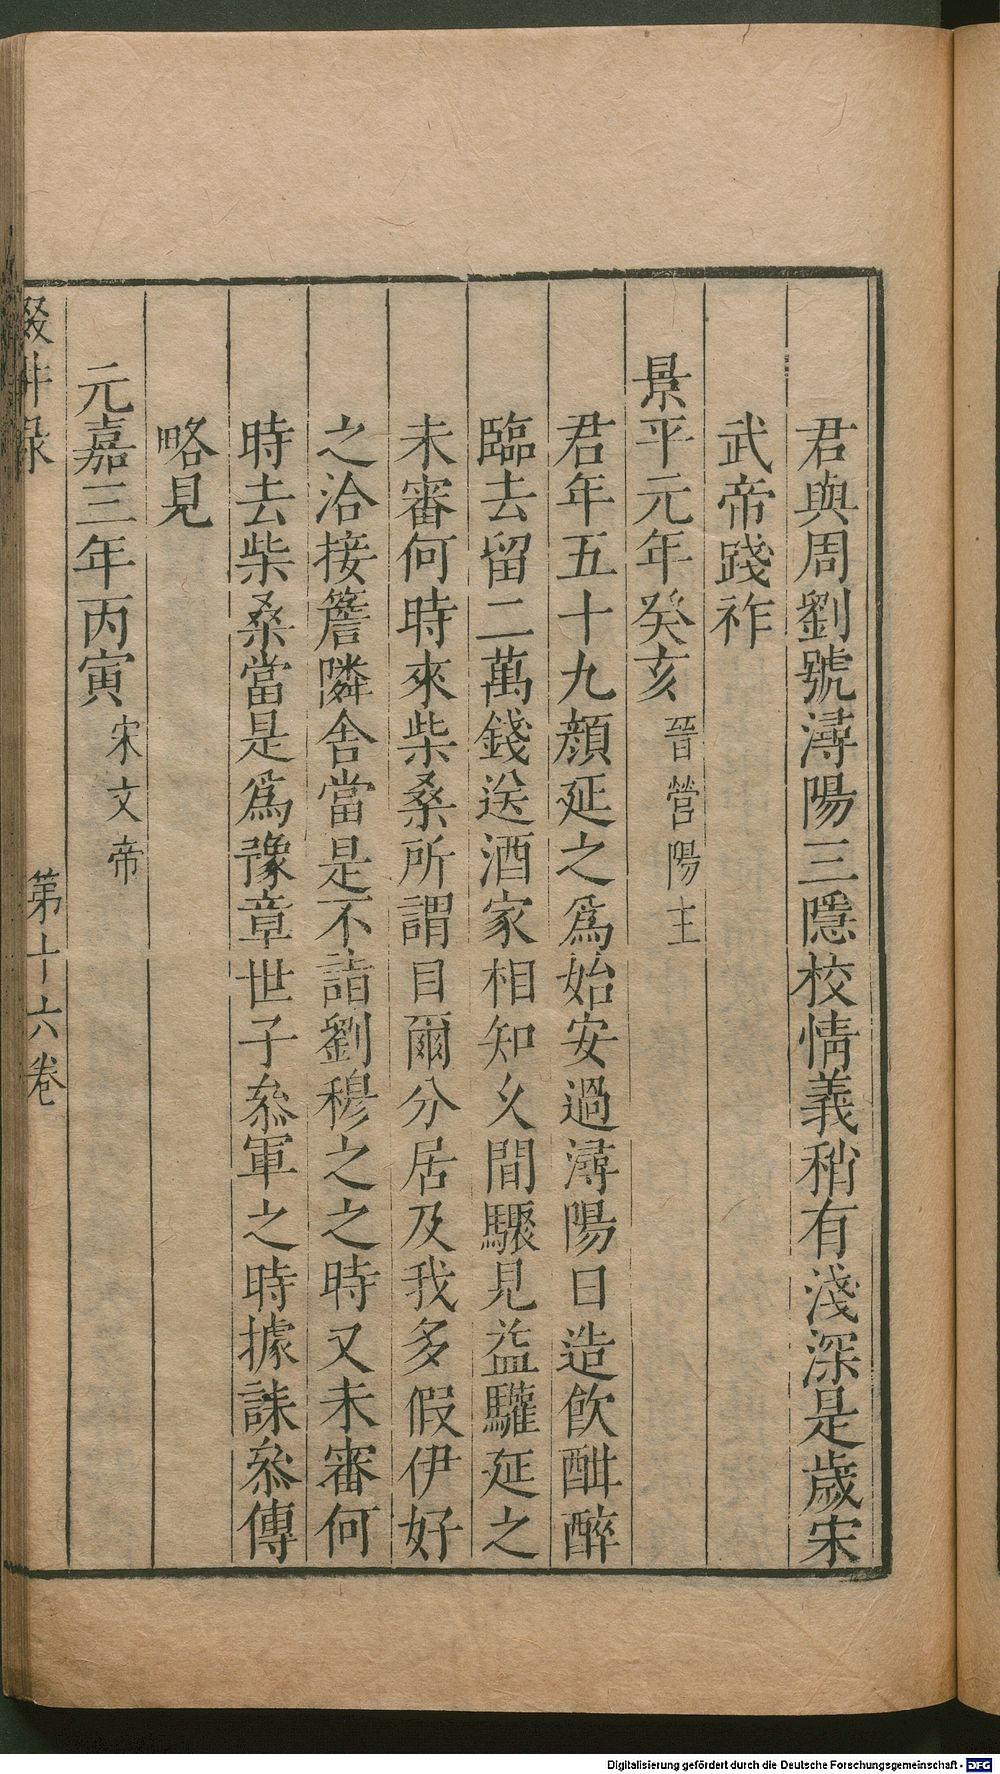 君與周劉號潯陽三隱校情義稍有淺深是歲宋
武帝踐祚
景平元年癸亥晉營陽主
君年五十九顏延之爲始安過潯陽日造飲酣醉
臨去留二萬錢送酒家相知乆間驟見益驩延之
未審何時來柴桑所謂目爾分居及我多假伊好
之洽接簷隣舎當是不詣劉穆之之時又未審何
時去柴桑當是爲豫章世子叅軍之時據誄叅傳
略見
元嘉三年丙寅宋文帝
輟畊録
第十六卷
Digitalisierung gefördert durch die Deutsche Forschungsgemeinschaft - DFG